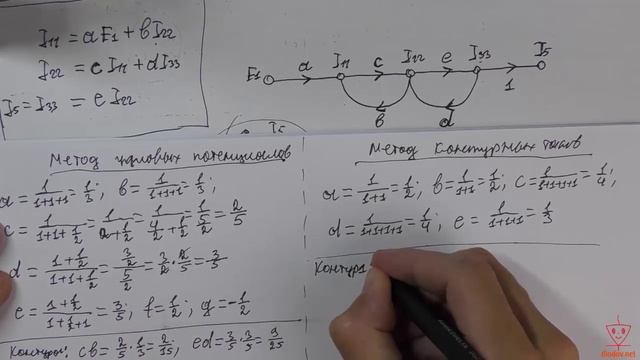 I₁₁ = aE₁ + bI₂₂
I₂₂ = cI₁₁ + dI₃₃
I₅ = I₃₃ = eI₂₂
E₁ a I₁₁ c I₂₂ e I₃₃ 1 I₅
b d
I₅
Метод узловых потенциалов
a = 1/(1+1+1) = 1/3; b = 1/(1+1+1) = 1/3;
c = 1/(1+1+1/2) = 1/(2+1/2) = 1/(4/2+1/2) = 1/(5/2) = 2/5
d = (1+1/2)/(1+1+1/2) = (3/2)/(5/2) = 3/2 · 2/5 = 3/5
e = (1+1/2)/(1+1/2+1) = 3/5; f = 1/2; g = -1/2
Контуры: cb = 2/5 · 1/3 = 2/15, ed = 3/5 · 3/5 = 9/25
Метод контурных токов
a = 1/(1+1) = 1/2; b = 1/(1+1) = 1/2; c = 1/(1+1+1+1) = 1/4;
d = 1/(1+1+1+1) = 1/4; e = 1/(1+1+1) = 1/3
Контуры
diodov.net